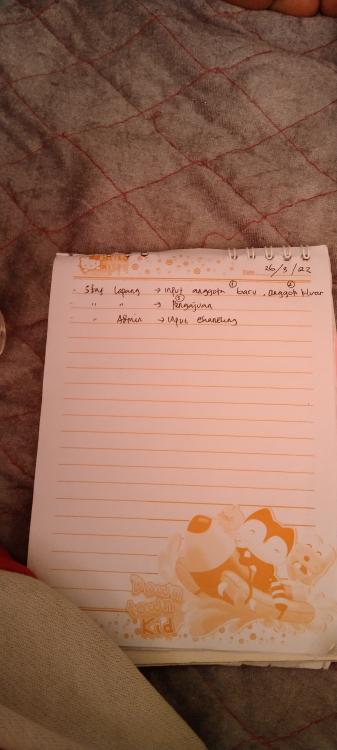 Date 26/3/22
- Staf Lapang → input anggota ① baru, ② anggota kluar
- " " → ③ Pengajuan
- " Admin → input chaneling
Down
Dream
Kid